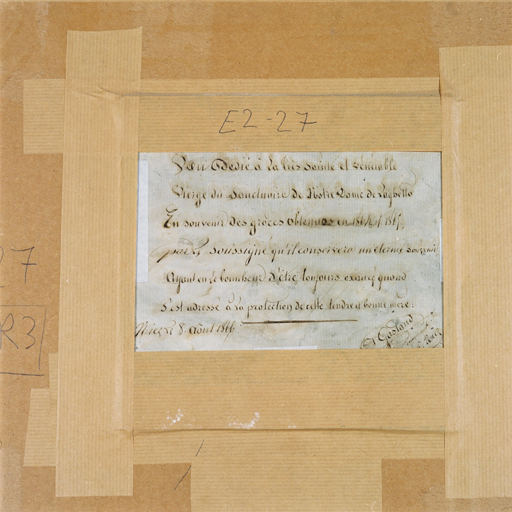 E2-27
Vœu Dédié à La très Sainte et aimable
Vierge du Sanctuaire de Notre Dame de Laghetto
En souvenir des grâces obtenues en 1864 et 1865
par le soussigné qu'il conservera un éternel souvenir
Ayant eu le bonheur d'être toujours exaucé quand
s'est adressé à la protection de cette tendre et bonne mère.
Nice le 8 Août 1866
27
R31